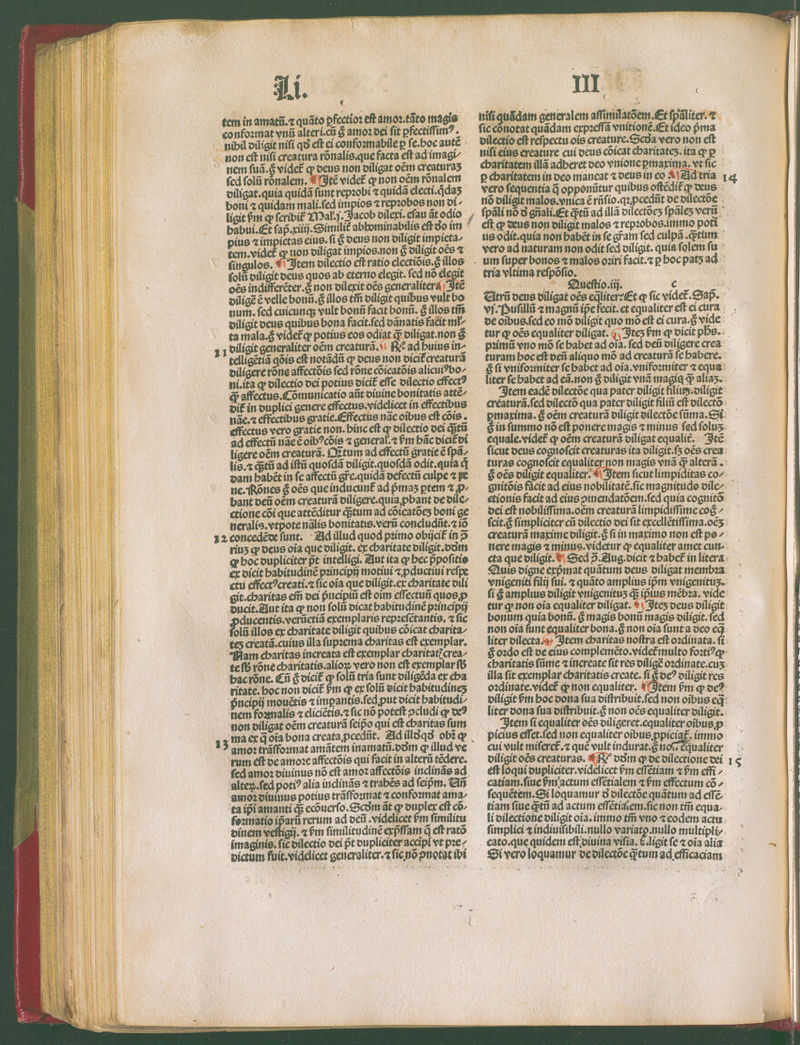 Li.
III
tem in amatũ.⁊ quãto ꝑfectior est amor.tãto magis
conformat vnũ alteri.cũ g̃ amor dei sit ꝑfectissimꝰ.
nihil diligit nisi qd̃ est ei conformabile ꝑ se.hoc autẽ
non est nisi creatura rõnalis.que facta est ad imagi⸗
nem suã.g̃ videt̃ ꝙ deus non diligat oẽm creaturaʒ
sed solũ rõnalem. ¶ Itẽ videt̃ ꝙ non oẽm rõnalem
diligat.quia quidã sunt reprobi ⁊ quidã electi.q̃daʒ
boni ⁊ quidam mali.sed impios ⁊ reprobos non di⸗
ligit ṽm ꝙ scribit̃ Mal.j.Jacob dilexi.esau ãt odio
habui.Et sap̃.xiiij.Similit̃ abhominabilis est do im
pius ⁊ impietas eius.si g̃ deus non diligit impieta⸗
tem.videt̃ ꝙ non diligat impios.non g̃ diligit oẽs ⁊
singulos. ¶ Item dilectio est ratio electiõis.g̃ illos
solũ diligit deus quos ab eterno elegit.sed nõ elegit
oẽs indifferẽter.g̃ non dilexit oẽs generaliter. ¶ Itẽ
diligẽ ẽ velle bonũ.g̃ illos tm̃ diligit quibus vult bo
num.sed cuicunqꝫ vult bonũ facit bonũ.g̃ illos tm̃
diligit deus quibus bona facit.sed dãnatis facit ml̃⸗
ta mala.g̃ videt̃ ꝙ potius eos odiat q̃ꝫ diligat.non g̃
11 diligit generaliter oẽm creaturã. ¶ R̃ ad huius in⸗
telligẽtiã qõis est notãdũ ꝙ deus non dicit̃ creaturã
diligere rõne affectõis sed rõne cõicatõis alicuiꝰ bo⸗
ni.ita ꝙ dilectio dei potius dicit̃ esse dilectio effectꝰ
q̃ꝫ affectus.Cõmunicatio aũt diuine bonitatis attẽ⸗
dit̃ in duplici genere effectus.videlicet in effectibus
nãe.⁊ effectibus gratie.Effectus nãe oibus est cõis.
effectus vero gratie non.hinc est ꝙ dilectio dei q̃ꝫtũ
ad effectũ nãe ẽ oibꝰ cõis ⁊ general̃.⁊ ṽm hãc dicit̃ di
ligere oẽm creaturã. Q̃ꝫtum ad effectũ gratie ẽ sp̃a⸗
lis.⁊ q̃ꝫtũ ad istũ quosdã diligit.quosdã odit.quia q̃
dam habẽt in se affectũ gr̃e.quidã defectũ culpe ⁊ pe
ne.Rõnes g̃ oẽs que inducunt̃ ad p̃maʒ ptem ⁊ ꝓ⸗
bant deũ oẽm creaturã diligere.quia ꝓbant de dile⸗
ctione cõi que attẽditur q̃ꝫtum ad cõicatõeʒ boni ge
neralis.vtpote nãlis bonitatis.verũ concludũt.⁊ iõ
12 concedẽde sunt. Ad illud quod primo obijcit̃ in ꝯ̃
riuʒ ꝙ deus oia que diligit.ex charitate diligit.dõm
ꝙ hoc dupliciter põt intelligi. Aut ita ꝙ hec p̃positio
ex dicit habitudinẽ principij motiui ⁊ ꝓductiui respe
ctu effectꝰ creati.⁊ sic oia que diligit.ex charitate dili
git.charitas em̃ dei p̃ncipiũ est oim effectuũ quos ꝓ
ducit.Aut ita ꝙ non solũ dicat habitudinẽ principij
ꝓducentis.verũetiã exemplaris repr̃esẽtantis. ⁊ sic
solũ illos ex charitate diligit quibus cõicat charita⸗
teʒ creatã.cuius illa suprema charitas est exemplar.
Nam charitas increata est exemplar charitatꝭ crea⸗
te sb̃ rõne charitatis.alioꝝ vero non est exemplar sb̃
hac rõne. Cũ g̃ dicit̃ ꝙ solũ tria sunt diligẽda ex cha
ritate. hoc non dicit̃ ṽm ꝙ ex solũ dicit habitudineʒ
p̃ncipij mouẽtis ⁊ impantis.sed put dicit habitudi⸗
nem formalis ⁊ eliciẽtis.⁊ sic nõ potest ꝯcludi ꝙ deꝰ
non diligat oẽm creaturã seip̃o qui est charitas sum
ma ex q̃ oĩa bona creata ꝓcedũt. Ad illd̃ qd̃ obi t̃ ꝙ
13 amor trãsformat amãtem in amatũ.dõm ꝙ illud ve
rum est de amore affectõis qui facit in alterũ tẽdere.
sed amor diuinus nõ est amor affectõis inclinãs ad
alteꝝ.sed potiꝰ alia inclinãs ⁊ trahẽs ad seipm̃. Vñ
amor diuinus potius trãsformat ⁊ conformat ama⸗
ta ip̃i amanti q̃ꝫ ecõuerso.Scdm ãt ꝙ duplex est cõ⸗
formatio ip̃arũ rerum ad deũ .videlicet ṽm similitu
dinem vestigij. ⁊ ṽm similitudinẽ exp̃ssam q̃ est ratõ
imaginis. sic dilectio dei põt dupliciter accipi vt pre⸗
dictum fuit.videlicet generaliter.⁊ sic nõ ꝯnotat ibi
nisi quãdam generalem assimilatõem.Et sp̃aliter.⁊
sic cõnotat quãdam expressã vnitionẽ.Et ideo p̃ma
dilectio est respectu ois creature.Scda vero non est
nisi eius creature cui deus cõicat charitateʒ. ita ꝙ ꝑ
charitatem illã adheret deo vnione ꝑmaxima. vt sic
ꝑ charitatem in deo maneat ⁊ deus in eo. ¶ Ad tria 14
vero sequentia q̃ opponũtur quibus ostẽdit̃ ꝙ deus
nõ diligit malos.vnica ẽ rñsio.qꝛ ꝓcedũt de dilectõe
sp̃ali nõ d̃ gñali.Et q̃ꝫtũ ad illã dilectõeʒ sp̃aleʒ verũ
est ꝙ deus non diligit malos ⁊ reprobos.immo poti
us odit.quia non habẽt in se gr̃am sed culpã .q̃ꝫtum
vero ad naturam non odit sed diligit. quia solem su
um super bonos ⁊ malos oriri facit.⁊ ꝑ hoc patʒ ad
tria vltima respõsio.
Questio.iij. c
Utrũ deus diligat oẽs eq̃liter:Et ꝙ sic videt̃. Sap̃.
vj. Pusillũ ⁊ magnũ ip̃e fecit.et equaliter est ei cura
de oibus.sed eo mõ diligit quo mõ est ei cura.g̃ vide
tur ꝙ oẽs equaliter diligat. ¶ Iteʒ ṽm ꝙ dicit ph̃s.
primũ vno mõ se habet ad oia. sed deũ diligere crea
turam hoc est deũ aliquo mõ ad creaturã se habere.
g̃ si vniformiter se habet ad oia.vniformiter ⁊ equa
liter se habet ad eã.non g̃ diligit vnã magis q̃ꝫ aliaʒ.
Item eadẽ dilectõe qua pater diligit filiuʒ.diligit
creaturã.sed dilectõ qua pater diligit filiũ est dilectõ
ꝑmaxima. g̃ oẽm creaturã diligit dilectõe sũma.Si
g̃ in summo nõ est ponere magis ⁊ minus sed soluʒ
equale.videt̃ ꝙ oẽm creaturã diligat equalit̃. Itẽ
sicut deus cognoscit creaturas ita diligit.sʒ oẽs crea
turas cognoscit equaliter non magis vnã q̃ꝫ alterã.
g̃ oẽs diligit equaliter. ¶ Item sicut limpiditas co⸗
gnitõis facit ad eius nobilitatẽ.sic magnitudo dile⸗
ctionis facit ad eius ꝯmendatõem.sed quia cognitõ
dei est nobilissima.oẽm creaturã limpidissime cog̃⸗
scit.g̃ simpliciter cũ dilectio dei sit excellẽtissima.oẽʒ
creaturã maxime diligit.g̃ si in maximo non est po⸗
nere magis ⁊ minus.videtur ꝙ equaliter amet cun⸗
cta que diligit. ¶ Sed ꝯ̃. Aug. dicit ⁊ habet̃ in litera
Quis digne exp̃mat quãtum deus diligat membra
vnigeniti filij sui. ⁊ quãto amplius ip̃m vnigenituʒ.
si g̃ amplius diligit vnigenituʒ q̃ꝫ ip̃ius mẽbra. vide
tur ꝙ non oia equaliter diligat. ¶ Iteʒ deus diligit
bonum quia bonũ. g̃ magis bonũ magis diligit. sed
non oĩa sunt equaliter bona.g̃ non oĩa sunt a deo eq̃
liter dilecta. ¶ Item charitas nostra est ordinata. si
g̃ ordo est de eius complemẽto.videt̃ multo fortiꝰ ꝙ
charitatis sũme ⁊ increate sit res diligẽ ordinate.cuʒ
illa sit exemplar charitatis create. si g̃ deꝰ diligit res
ordinate.videt̃ ꝙ non equaliter. ¶ Item ṽm ꝙ deꝰ
diligit ṽm hoc dona sua distribuit.sed non oibus eq̃
liter dona sua distribuit.g̃ non oẽs equaliter diligit.
Item si equaliter oẽs diligeret.equaliter oibus ꝓ
picius esset.sed non equaliter oibus ꝓpiciat̃. immo
cui vult miseret̃.⁊ quẽ vult indurat.g̃ nõ equaliter
diligit oẽs creaturas. ¶ R̃ dõm ꝙ de dilectione dei 15
est loqui dupliciter.videlicet ṽm essẽtiam ⁊ ṽm effi⸗
catiam.siue ṽm actum essẽtialem ⁊ ṽm effectum cõ⸗
sequẽtem.Si loquamur d̃ dilectõe quãtum ad essẽ⸗
tiam siue q̃ꝫtũ ad actum essẽtialem.sic non tm̃ equa⸗
li dilectione diligit oĩa. immo tm̃ vno ⁊ eodem actu
simplici ⁊ indiuisibili.nullo variato.nullo multipli⸗
cato.que quidem est diuina vsia. ẽ.ligit se ⁊ oĩa alia
Si vero loquamur de dilectõe q̃ꝫtum ad efficaciam